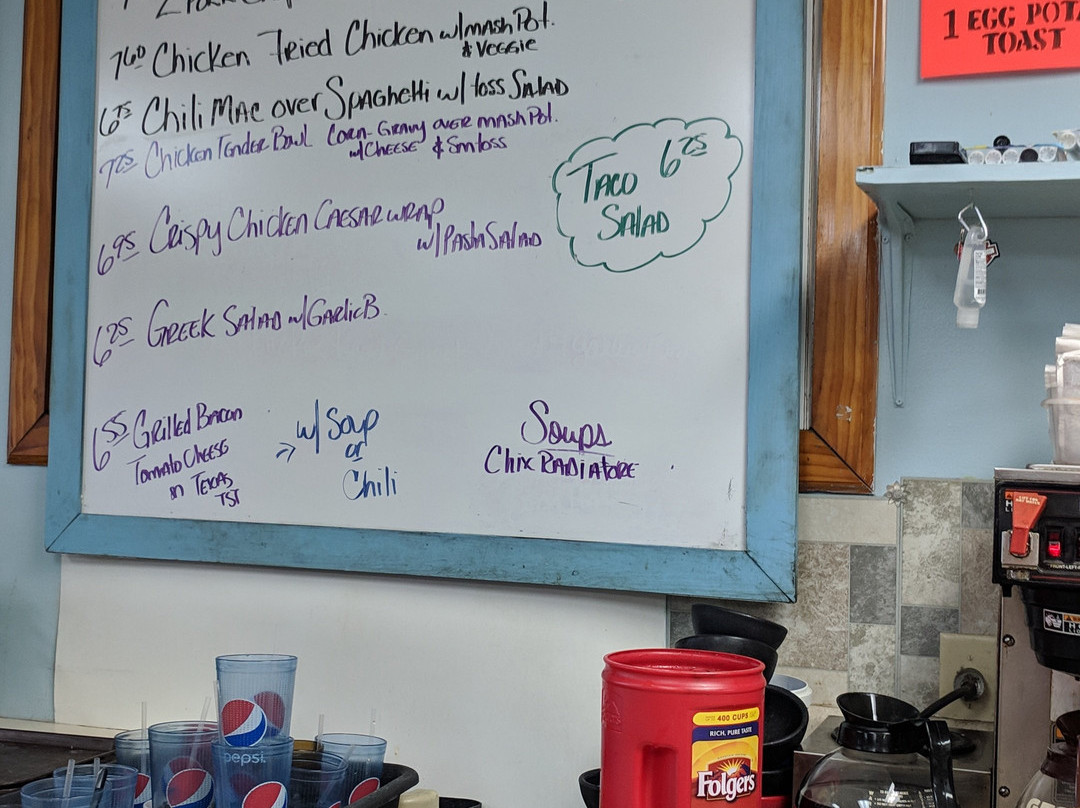 7 60 Chicken Fried Chicken w/mash Pot.
& Veggie
6 75 Chili Mac over Spaghetti w/ toss Salad
7 25 Chicken Tender Bowl Corn-Gravy over mash Pot.
w/ Cheese & Sm toss
6 95 Crispy Chicken Caesar wrap
w/ Pasta Salad
Taco 6 25
Salad
6 25 Greek Salad w/ Garlic B.
6 55 Grilled Bacon
Tomato Cheese
on Texas
TST
w/ Soup
or
Chili
Soups
Chix Radiatore
1 EGG POTA
TOAST
pepsi
400 CUPS
RICH, PURE TASTE
Folgers